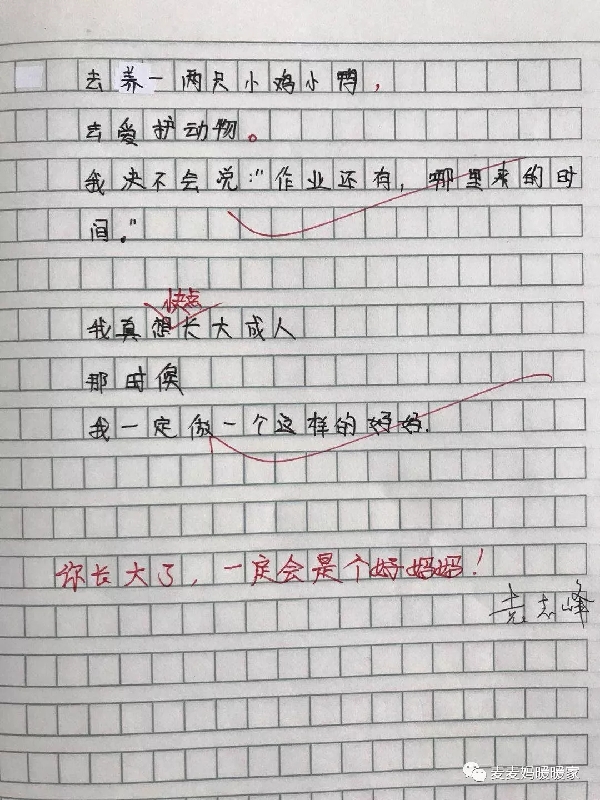 去养一两只小鸡小鸭，
去爱护动物。
我决不会说："作业还有，哪里来的时
间。"
快点
我真想长大成人
那时候
我一定做一个这样的好妈.
你长大了，一定会是个好妈妈！
袁志峰
麦麦妈暖暖家